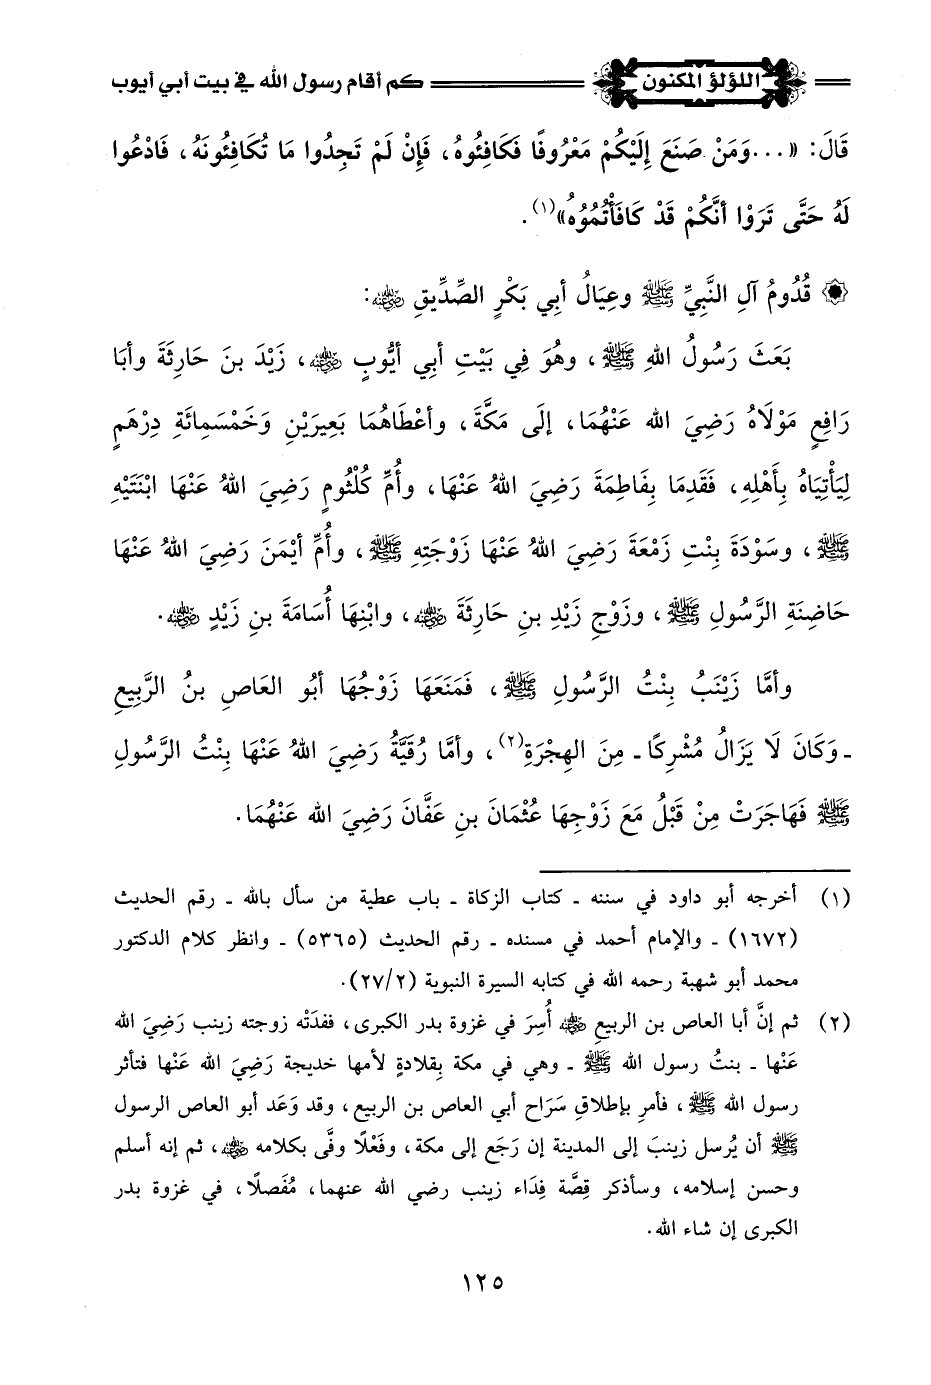 اللؤلؤ المكنون كم أقام رسول الله في بيت أبي أيوب
قَالَ: «...وَمَنْ صَنَعَ إِلَيْكُمْ مَعْرُوفًا فَكَافِئُوهُ، فَإِنْ لَمْ تَجِدُوا مَا تُكَافِئُونَهُ، فَادْعُوا
لَهُ حَتَّى تَرَوْا أَنَّكُمْ قَدْ كَافَأْتُمُوُهُ»(١).
قُدُومُ آلِ النَّبِيِّ ﷺ وعِيَالُ أبِي بَكْرٍ الصِّدِّيقِ رضي الله عنه:
بَعَثَ رَسُولُ اللهِ ﷺ، وهُوَ فِي بَيْتِ أبِي أيُّوبٍ رضي الله عنه، زَيْدَ بنَ حَارِثَةَ وأبَا
رَافِعٍ مَوْلَاهُ رَضِيَ الله عَنْهُمَا، إلَى مَكَّةَ، وأعْطَاهُمَا بَعِيرَيْنِ وَخَمْسَمِائَةِ دِرْهَمٍ
لِيَأْتِيَاهُ بِأَهْلِهِ، فَقَدِمَا بِفَاطِمَةَ رَضِيَ اللهُ عَنْهَا، وأُمِّ كُلْثُومٍ رَضِيَ اللهُ عَنْهَا ابْنَتَيْهِ
ﷺ، وسَوْدَةَ بِنْتِ زَمْعَةَ رَضِيَ اللهُ عَنْهَا زَوْجَتِهِ ﷺ، وأُمِّ أيْمَنَ رَضِيَ اللهُ عَنْهَا
حَاضِنَةِ الرَّسُولِ ﷺ، وزَوْجِ زَيْدِ بنِ حَارِثَةَ رضي الله عنه، وابْنِهَا أُسَامَةَ بنِ زَيْدٍ رضي الله عنه.
وأمَّا زَيْنَبُ بِنْتُ الرَّسُولِ ﷺ، فَمَنَعَهَا زَوْجُهَا أبُو العَاصِ بنُ الرَّبِيعِ
ـ وَكَانَ لَا يَزَالُ مُشْرِكًا ـ مِنَ الهِجْرَةِ(٢)، وأمَّا رُقَيَّةُ رَضِيَ اللهُ عَنْهَا بِنْتُ الرَّسُولِ
ﷺ فَهَاجَرَتْ مِنْ قَبْلُ مَعَ زَوْجِهَا عُثْمَانَ بنِ عَفَّانَ رَضِيَ الله عَنْهُمَا.
(١) أخرجه أبو داود في سننه ـ كتاب الزكاة ـ باب عطية من سأل بالله ـ رقم الحديث
(١٦٧٢) ـ والإمام أحمد في مسنده ـ رقم الحديث (٥٣٦٥) ـ وانظر كلام الدكتور
محمد أبو شهبة رحمه الله في كتابه السيرة النبوية (٢٧/٢).
(٢) ثم إنَّ أبا العاص بن الربيعِ رضي الله عنه أُسِرَ في غزوة بدر الكبرى، ففدَتْه زوجته زينب رَضِيَ الله
عَنْهَا ـ بنتُ رسول الله ﷺ ـ وهي في مكة بِقلادةٍ لأمها خديجة رَضِيَ الله عَنْهَا فتأثر
رسول الله ﷺ، فأمر بإطلاقِ سَرَاح أبي العاص بن الربيع، وقد وَعَد أبو العاص الرسول
ﷺ أن يُرسل زينبَ إلى المدينة إن رَجَع إلى مكة، وفَعْلًا وفَّى بكلامه رضي الله عنه، ثم إنه أسلم
وحسن إسلامه، وسأذكر قِصَّة فِدَاء زينب رضي الله عنهما، مُفَصلًا، في غزوة بدر
الكبرى إن شاء الله.
١٢٥